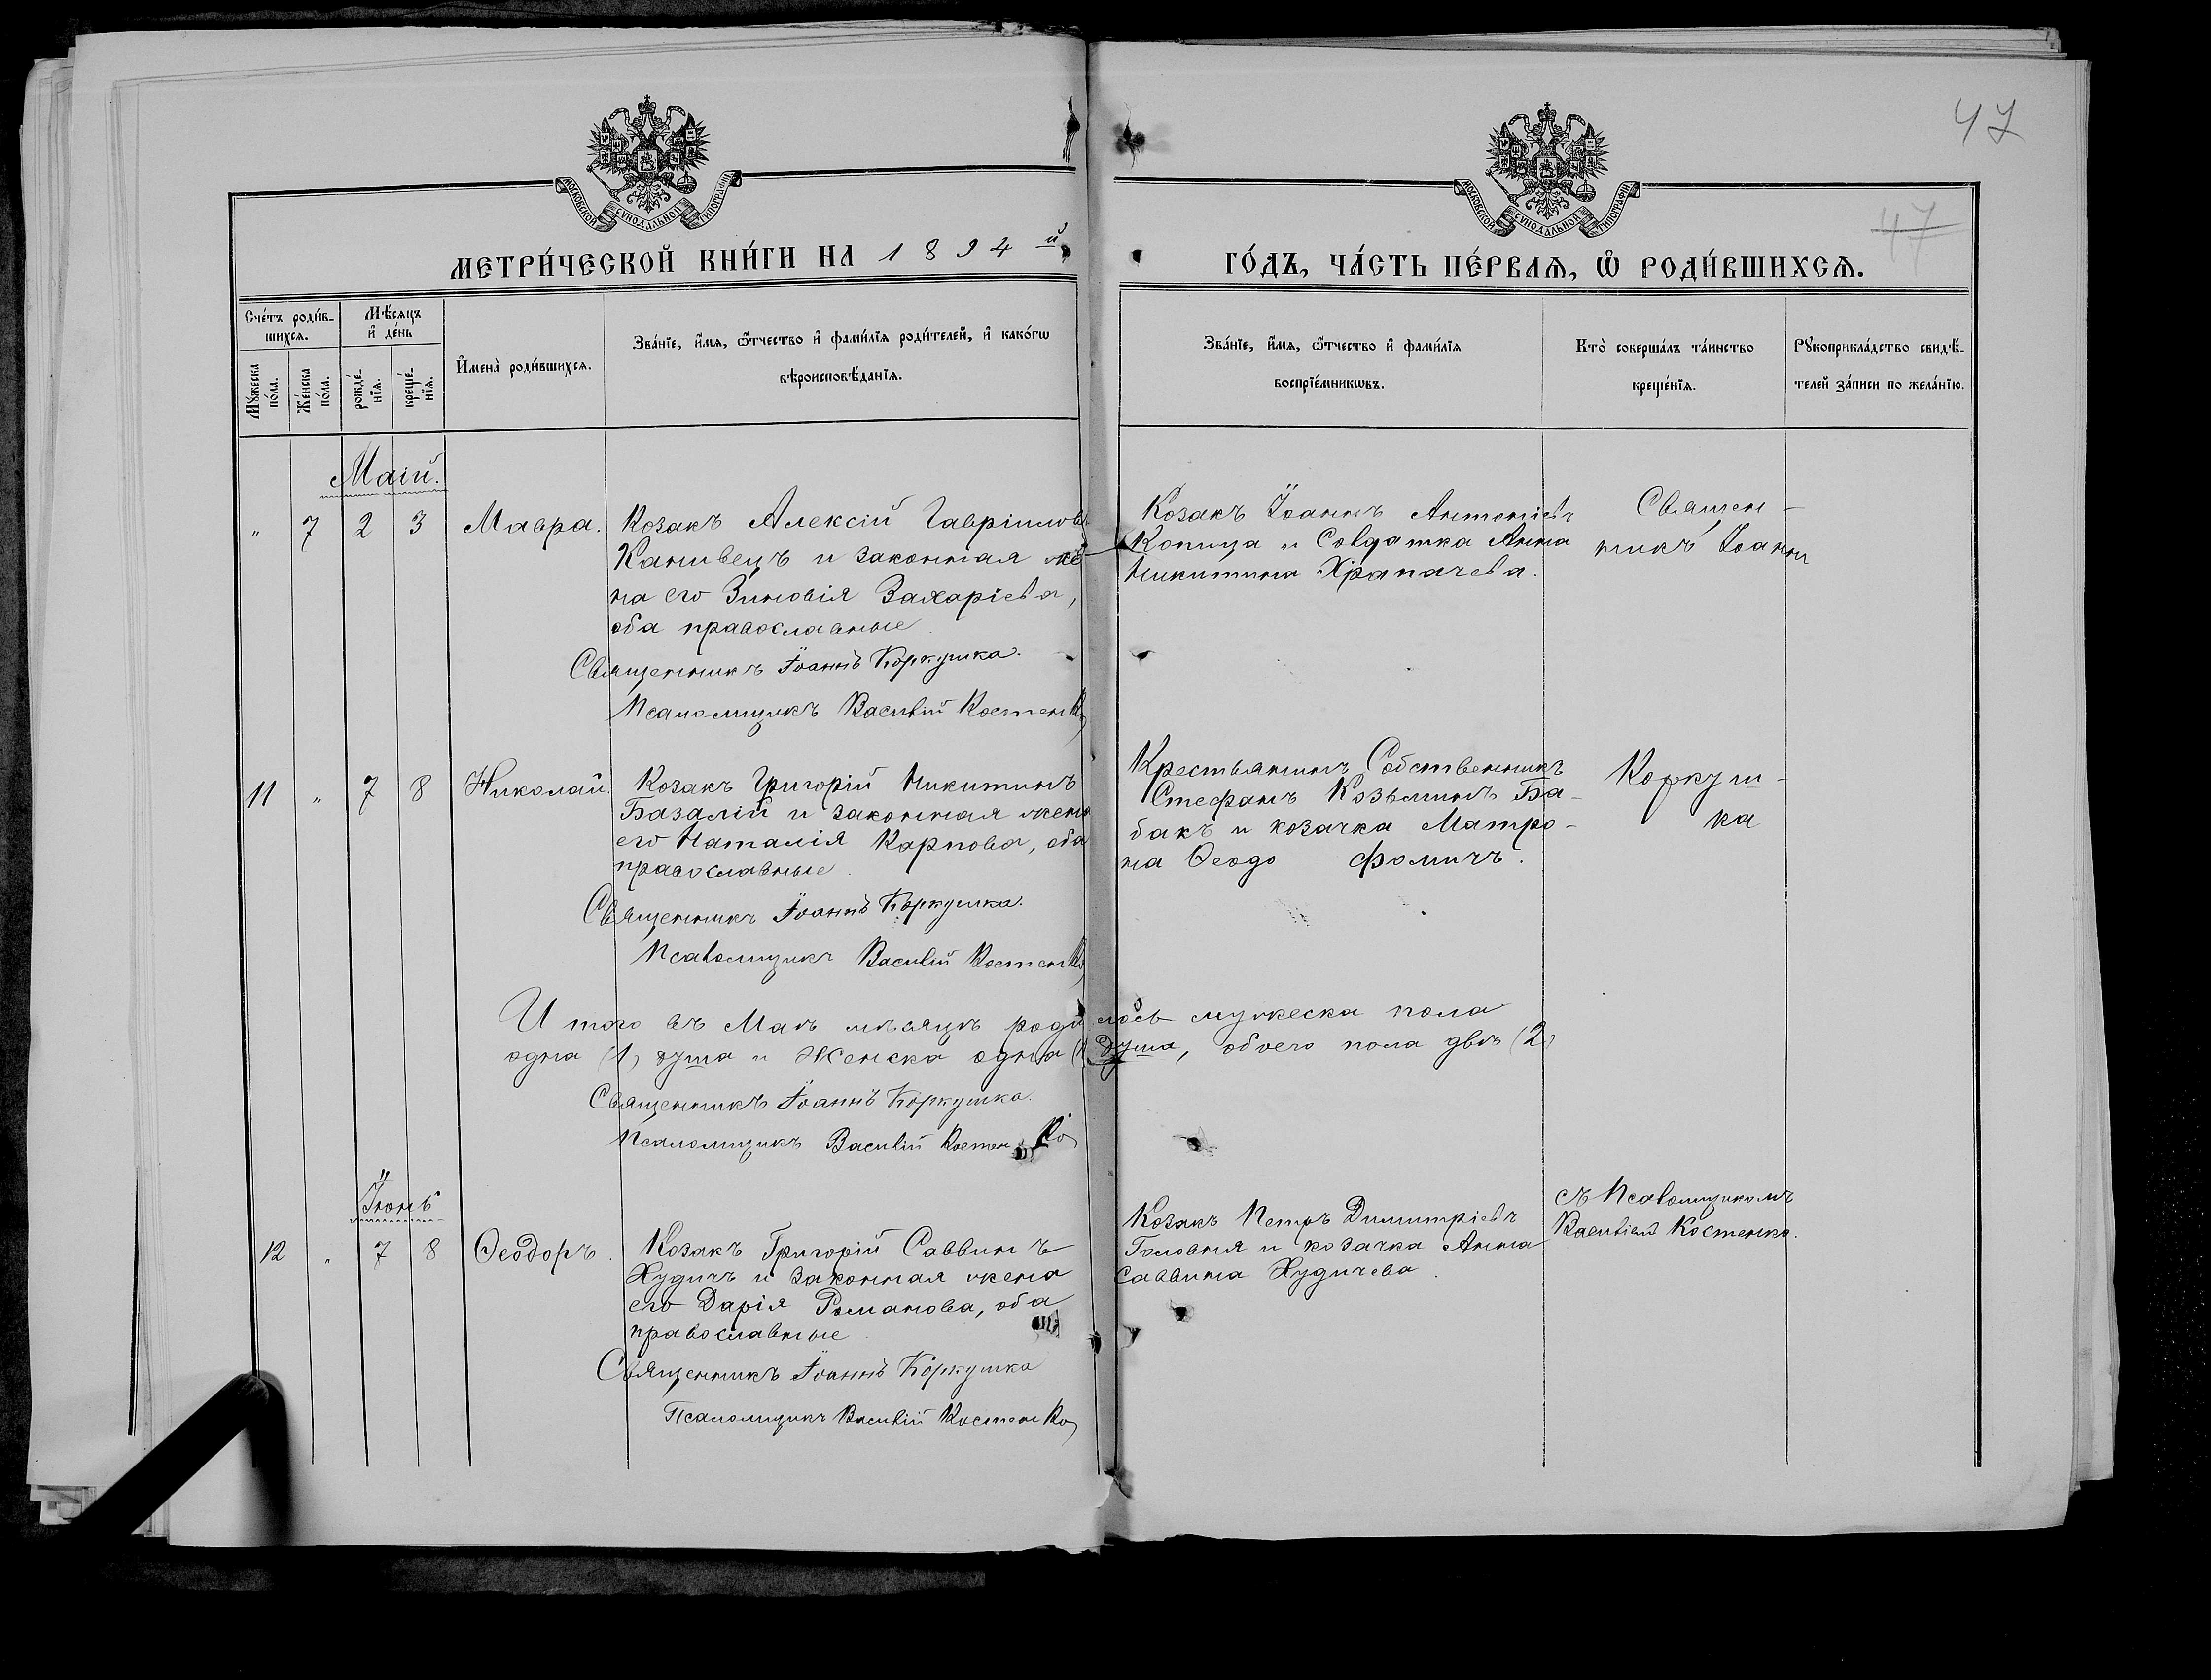 47
47
МОСКОВСКОЙ СѴНОДАЛЬНОЙ ТИПОГРАФІИ
МОСКОВСКОЙ СѴНОДАЛЬНОЙ ТИПОГРАФІИ
МЕТРИ́ЧЕСКОЙ КНИ́ГИ НА 1894 й
ГО́ДЪ, ЧА́СТЬ ПЕ́РВАѦ, Ѡ҆ РОДИ́ВШИХСѦ.
Сче́тъ роди́в-
шихсѧ.
Мꙋ́жеска
по́ла.
Же́нска
по́ла.
Мѣ́сѧцъ
и҆ де́нь
рожде́-
нїѧ.
креще́-
нїѧ.
И҆мена̀ роди́вшихсѧ.
Зва́нїе, и҆́мѧ, ѻ҆́тчество и҆ фами́лїѧ роди́телей, и҆ како́гѡ
вѣроисповѣ́данїѧ.
Зва́нїе, и҆́мѧ, ѻ҆́тчество и҆ фами́лїѧ
воспрїе́мникѡвъ.
Кто̀ соверша́лъ та́инство
креще́нїѧ.
Рꙋкоприкла́дство свидѣ́-
телей за́писи по жела́нїю.
Маій.
" 7 2 3 Мавра.
Козакъ Алексій Гавріиловъ
Канивецъ и законная же
на его Зиновія Захаріева,
оба православные
Священникъ Іоаннъ Коркушка.
Псаломщикъ Василій Костенко
Козакъ Іоаннъ Антоніевъ
Копица и Солдатка Анна
Никитина Храпачева.
Священ-
никъ Іоаннъ
11 " 7 8 Николай.
Козакъ Григорій Никитинъ
Базалій и законная жена
его Наталія Карпова, оба
православные.
Священникъ Іоаннъ Коркушка.
Псаломщикъ Василій Костенко
Крестьянинъ Собственникъ
Стефанъ Козьминъ Ба-
бакъ и козачка Матро-
на Ѳеодо Фомичъ.
Коркуш-
ка
И того въ Маѣ мѣсяцѣ родилось мужеска пола
одна (1) душа и Женска одна (1) душа, обоего пола двѣ (2)
Священникъ Іоаннъ Коркушка.
Псаломщикъ Василій Костенко
Іюнь
12 " 7 8 Ѳеодоръ.
Козакъ Григорій Саввинъ
Худичъ и законная жена
его Дарія Романова, оба
православные
Священникъ Іоаннъ Коркушка
Псаломщикъ Василій Костенко
Козакъ Петръ Димитріевъ
Головня и козачка Анна
Саввина Худичева.
съ Псаломщикомъ
Василіем Костенко.